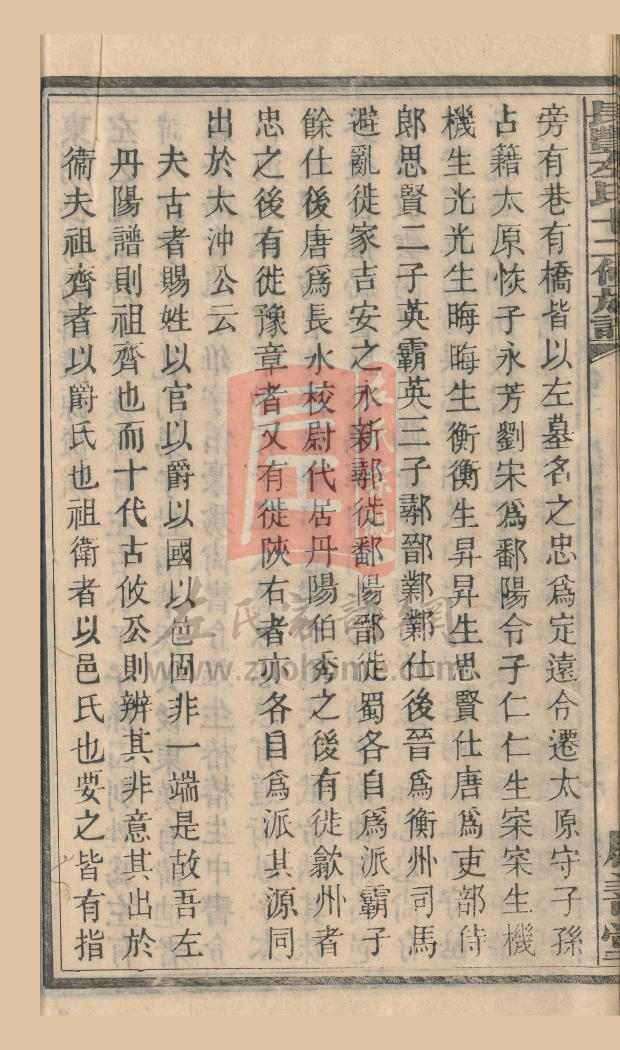 長豐左氏十二修族譜
旁有巷有橋皆以左墓名之忠爲定遠令遷太原守子孫
占籍太原恢子永芳劉宋爲鄱陽令子仁仁生寀寀生機
機生光光生晦晦生衡衡生昇昇生思賢仕唐爲吏部侍
郎思賢二子英霸英三子鄩鄑鄴鄴仕後晉爲衡州司馬
避亂徙家吉安之永新鄩徙鄱陽鄑徙蜀各自爲派霸子
餘仕後唐爲長水校尉代居丹陽伯秀之後有徙歙州者
忠之後有徙豫章者又有徙陝右者亦各自爲派其源同
出於太沖公云
夫古者賜姓以官以爵以國以邑固非一端是故吾左
丹陽譜則祖齊也而十代古攸公則辨其非意其出於
衞夫祖齊者以爵氏也祖衛者以邑氏也要之皆有指
左氏族譜網
www.zuohome.com